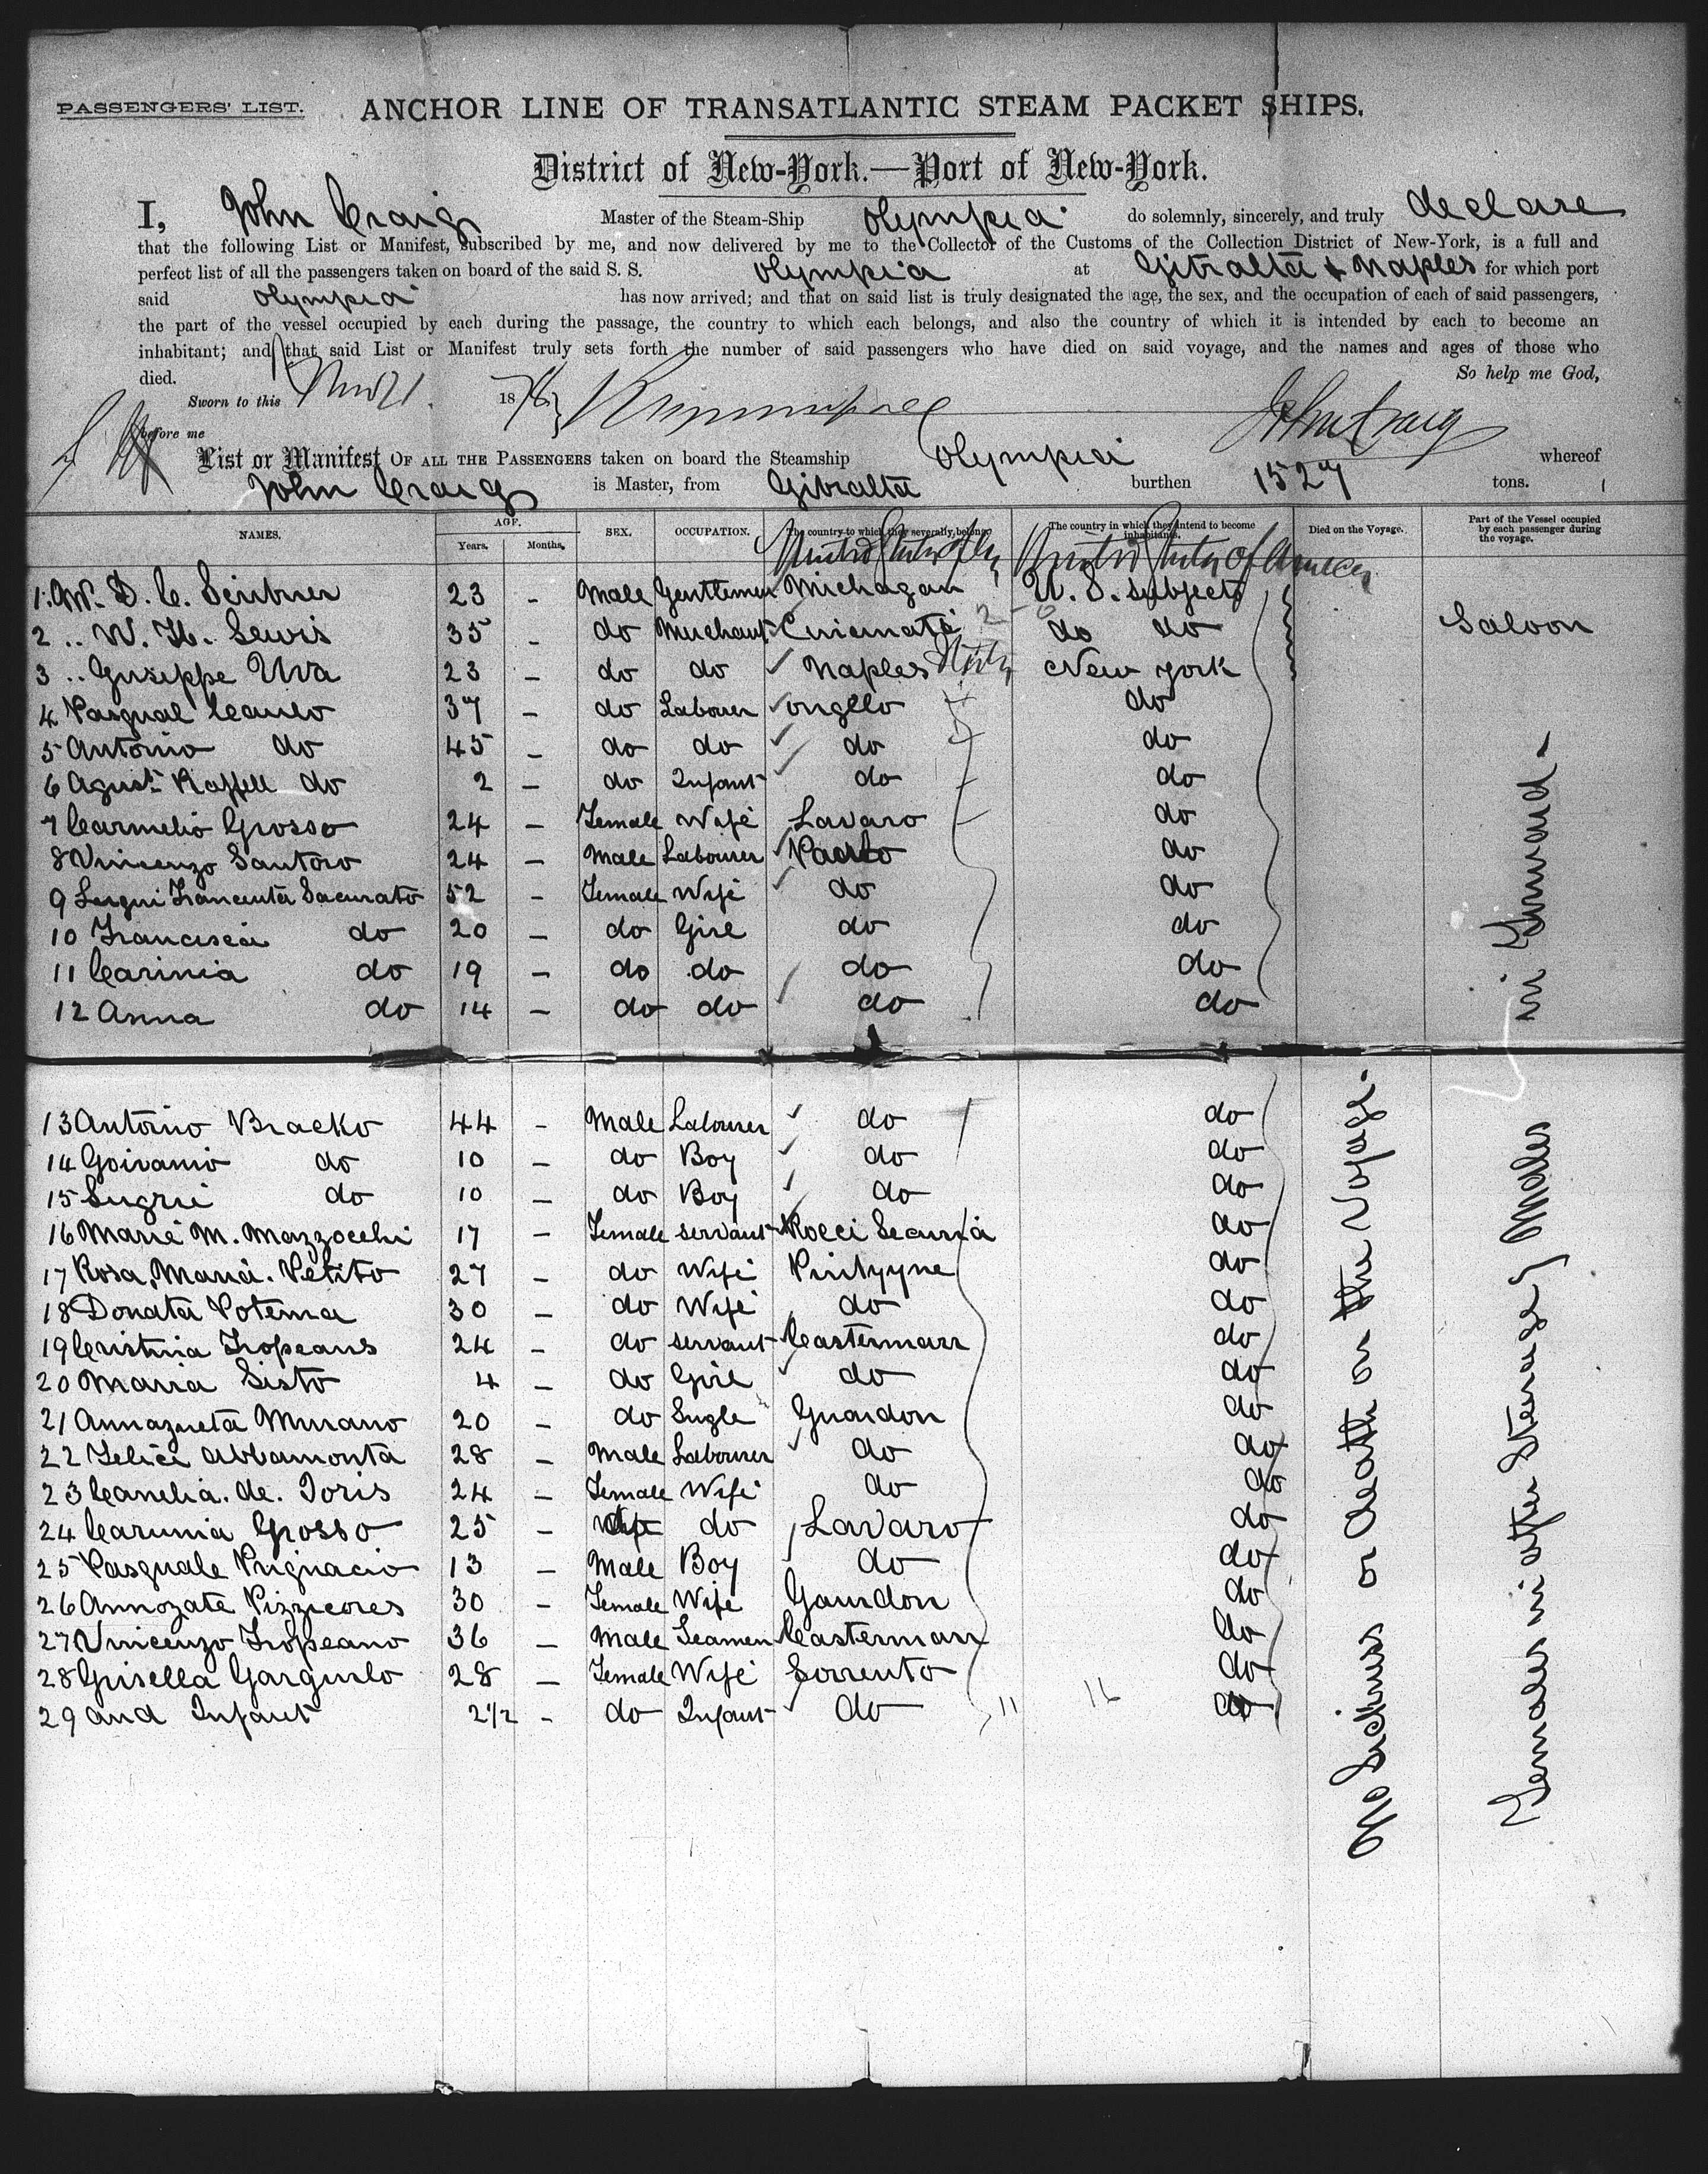 PASSENGERS' LIST. ANCHOR LINE OF TRANSATLANTIC STEAM PACKET SHIPS.
District of New-York.—Port of New-York.
I, John Craig Master of the Steam-Ship Olympia do solemnly, sincerely, and truly declare
that the following List or Manifest, subscribed by me, and now delivered by me to the Collector of the Customs of the Collection District of New-York, is a full and
perfect list of all the passengers taken on board of the said S. S. Olympia at Gibralta & Naples for which port
said Olympia has now arrived; and that on said list is truly designated the age, the sex, and the occupation of each of said passengers,
the part of the vessel occupied by each during the passage, the country to which each belongs, and also the country of which it is intended by each to become an
inhabitant; and that said List or Manifest truly sets forth the number of said passengers who have died on said voyage, and the names and ages of those who
died. So help me God,
Sworn to this 18 John Craig
before me
List or Manifest OF ALL THE PASSENGERS taken on board the Steamship Olympia whereof
John Craig is Master, from Gibralta burthen 1527 tons.
NAMES. AGE. Years. Months. SEX. OCCUPATION. The country to which they severally belong. The country in which they intend to become inhabitants. Died on the Voyage. Part of the Vessel occupied by each passenger during the voyage.
United States of United States of America
1. Mr. D. C. Scribner 23 - Male Gentlemen Michagan U. S. Subjects
2 .. W. H. Lewis 35 - do Merchant Cincinnati do do Saloon
3 .. Guseppe Uva 23 - do do Naples New York
4 Pasqual 37 - do Labourer do
5 Antonio do 45 - do do do do
6 Agust Raffell do 2 - do Infant do do
7 Carmelio Grosso 24 - Female Wife Lavaro do
8 Vincenzo Santoro 24 - Male Labourer do
9 52 - Female Wife do do
10 Francisca do 20 - do Girl do do
11 Carinia do 19 - do do do do
12 Anna do 14 - do do do do
13 Antonio Bracko 44 - Male Labourer do do
14 Goivanio do 10 - do Boy do do
15 do 10 - do Boy do do
16 Marie M. Mazzocchi 17 - Female servant Rocci do
17 Rosa Maria. Petito 27 - do Wife do
18 Donata Potenza 30 - do Wife do do
19 Cristina Tropeans 24 - do servant Castermarr do
20 Maria Sisto 4 - do Girl do do
21 Murano 20 - do Single Guardon do
22 Felici Abbamonta 28 - Male Labourer do do
23 de. Joris 24 - Female Wife do do
24 Carunia Grosso 25 - do do Lavaro do
25 Pasquale Prignacio 13 - Male Boy do do
26 Annozate Pizzicores 30 - Female Wife Gaurdon do
27 Vincenzo Tropeano 36 - Male Seamen Castermarr do
28 Gisella Gargiulo 28 - Female Wife Sorrento do
29 and Infant 2½ - do Infant do 11 16 do
No Sickness or death on the Voyage.
Females in after Steerage, Males
in Forward.